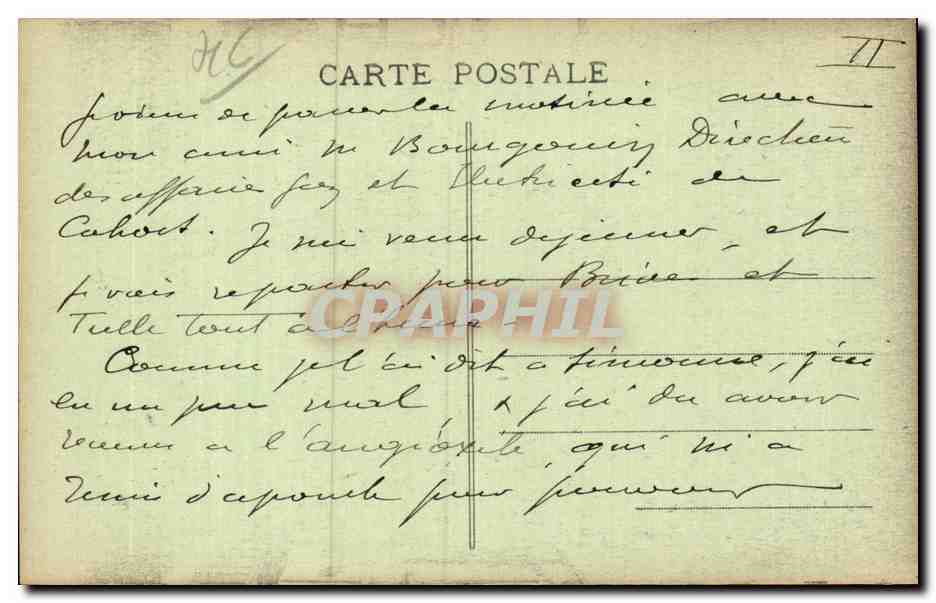 II
CARTE POSTALE
je viens de passer la matinée avec
mon ami M Directeur
des affaires Gaz et Electricité de
Cahors. Je suis venu déjeuner, et
je vais repartir pour Brive et
Tulle tout à l'heure -
Comme je l'ai dit a Simonne, j'ai
eu un peu mal, & j'ai du avoir
recours a l'angioxyle, qui m'a
remis d'aplomb pour pouvoir
CPAPHIL